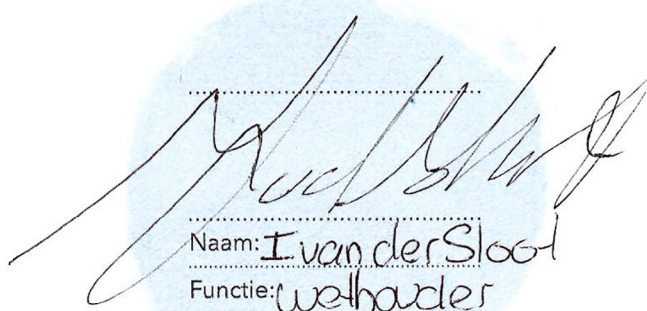 Naam: I van der Sloot
Functie: wethouder